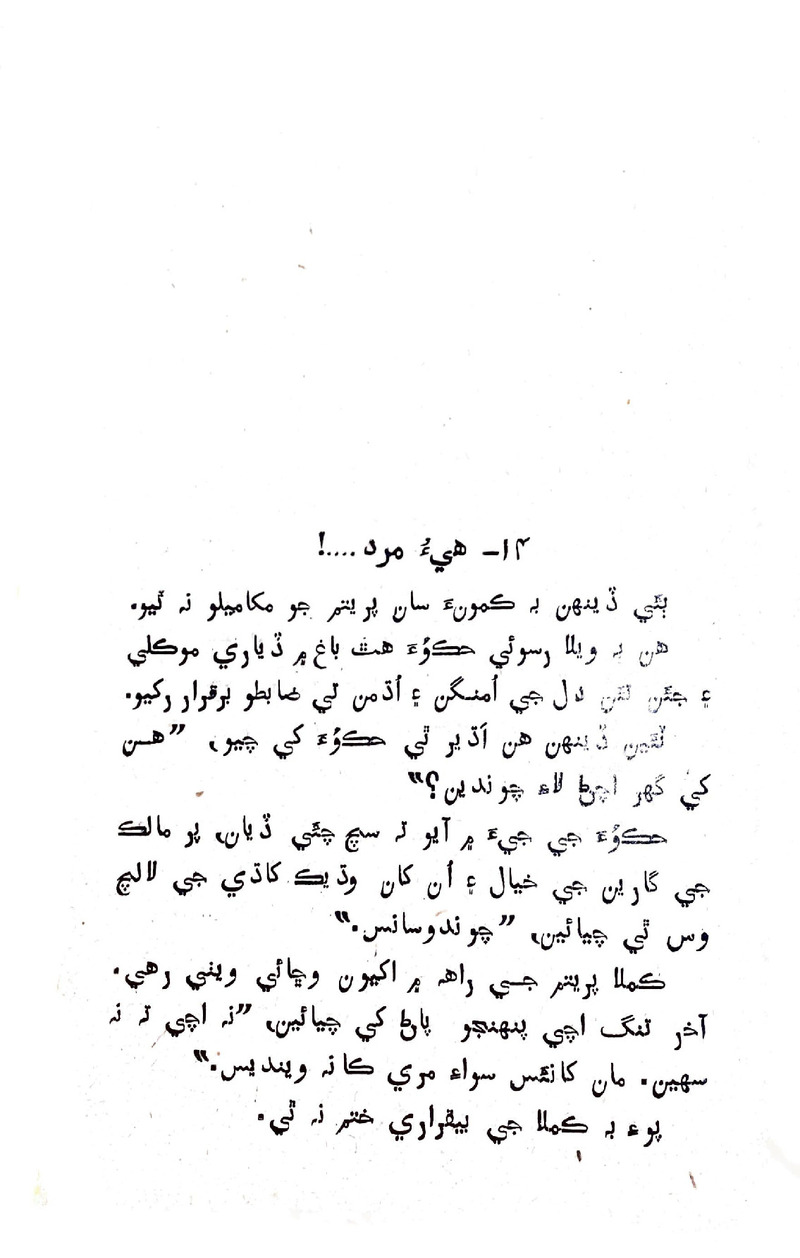 ۱۴- هيءُ مرد....!
ٻئي ڏينهن بہ ڪمونءَ سان پريتم جو مڪاميلو نہ ٿيو.
هن بہ ويلا رسوئي حڪوُءَ هٿ باغ ۾ ڏياري موڪلي
۽ جئن تئن دل جي اُمنگن ۽ اُڌمن تي ضابطو برقرار رکيو.
ٽئين ڏينهن هن اَڌير ٿي حڪوُءَ کي چيو، ”هن
کي گهر اچڻ لاءِ چوندين؟“
حڪوُءَ جي جيءَ ۾ آيو تہ سچ چئي ڏيان، پر مالڪ
جي گارين جي خيال ۽ اُن کان وڌيڪ کاڌي جي لالچ
وس ٿي چيائين، ”چوندوسانس.“
ڪملا پريتم جي راهہ ۾ اکيون وڇائي ويٺي رهي.
آخر تنگ اچي پنهنجو پاڻ کي چيائين، ”نہ اچي تہ نہ
سهين. مان کانئس سواءِ مري ڪانہ وينديس.“
پوءِ بہ ڪملا جي بيقراري ختم نہ ٿي.